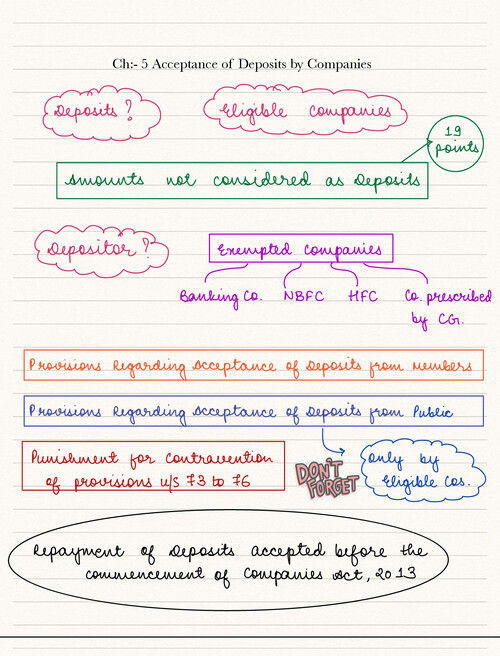 Ch:- 5 Acceptance of Deposits by Companies
Deposits?
Eligible companies
19
points
Amounts not considered as Deposits
Depositor?
Exempted companies
Banking Co.
NBFC
HFC
Co. prescribed
by CG.
Provisions Regarding Acceptance of Deposits from Members
Provisions Regarding Acceptance of Deposits from Public
Punishment for contravention
of provisions u/s 73 to 76
DON'T
FORGET
only by
Eligible Cos.
Repayment of Deposits accepted before the
commencement of Companies Act, 2013